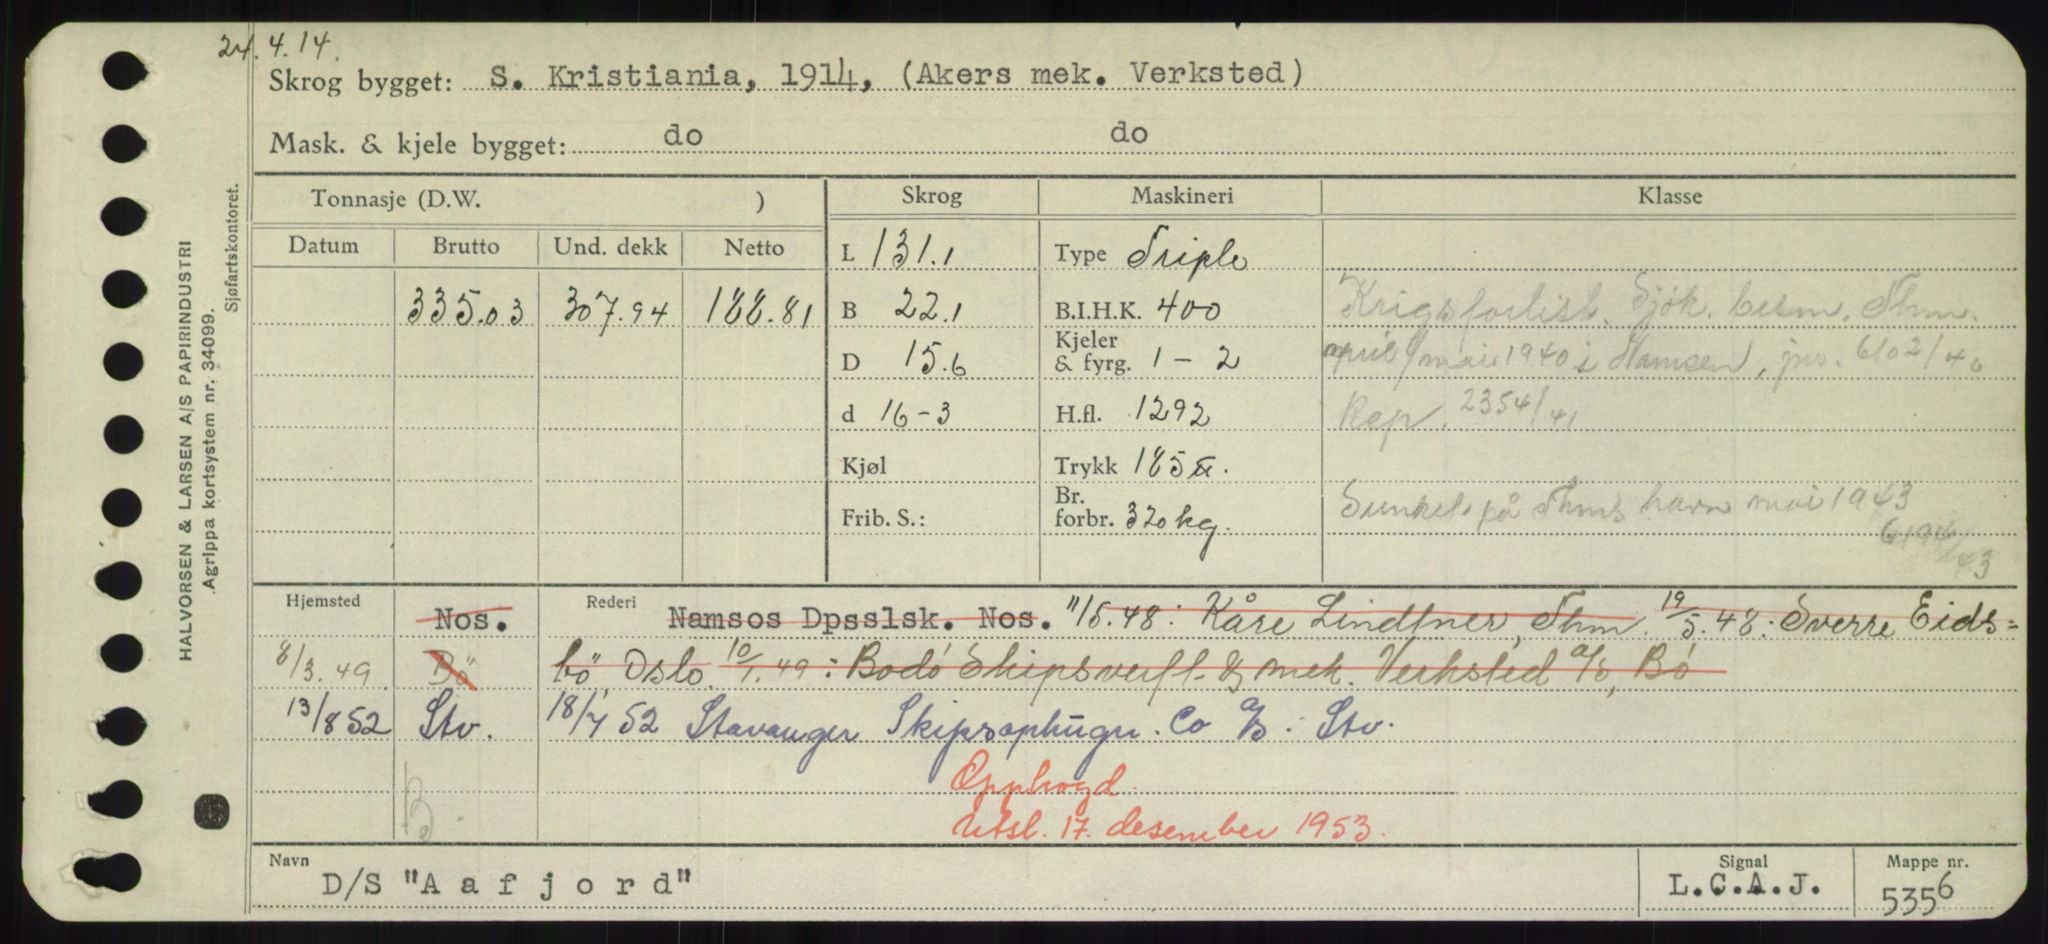 24.4.14.
Skrog bygget: S. Kristiania, 1914, (Akers mek. Verksted)
Mask. & kjele bygget: do do
HALVORSEN & LARSEN A/S PAPIRINDUSTRI
Agrippa kortsystem nr. 34099.
Sjøfartskontoret.
Tonnasje (D.W. ) Skrog Maskineri Klasse
Datum Brutto Und. dekk Netto
335.03 307.94 188.81
L 131.1
B 22.1
D 15.6
d 16-3
Kjøl
Frib. S.:
Type Triple
B.I.H.K. 400
Kjeler & fyrg. 1 - 2
H.fl. 1292
Trykk 185 ℔.
Br. forbr. 320 kg.
Krigsforlist. Sjök. besm. Thm.
april/mai 1940 i Namsen, jnr. 6102/40
Rep. 2354/41
Sunket på Thms havn mai 1943
6194/43
Hjemsted Rederi
Nos. Namsos Dpsslsk. Nos. 11/5.48: Kåre Lindtner, Thm. 19/5.48: Sverre Eids=
8/3.49 Bö bö Oslo. 10/1.49: Bodö Skipsverft & mek. Verksted a/s, Bö
13/8 52 Stv. 18/7 52 Stavanger Skipsophugn. Co a/s. Stv.
B.
Opphogd.
Utsl. 17. desember 1953.
Navn D/S "Aafjord"
Signal L.C.A.J.
Mappe nr. 5356